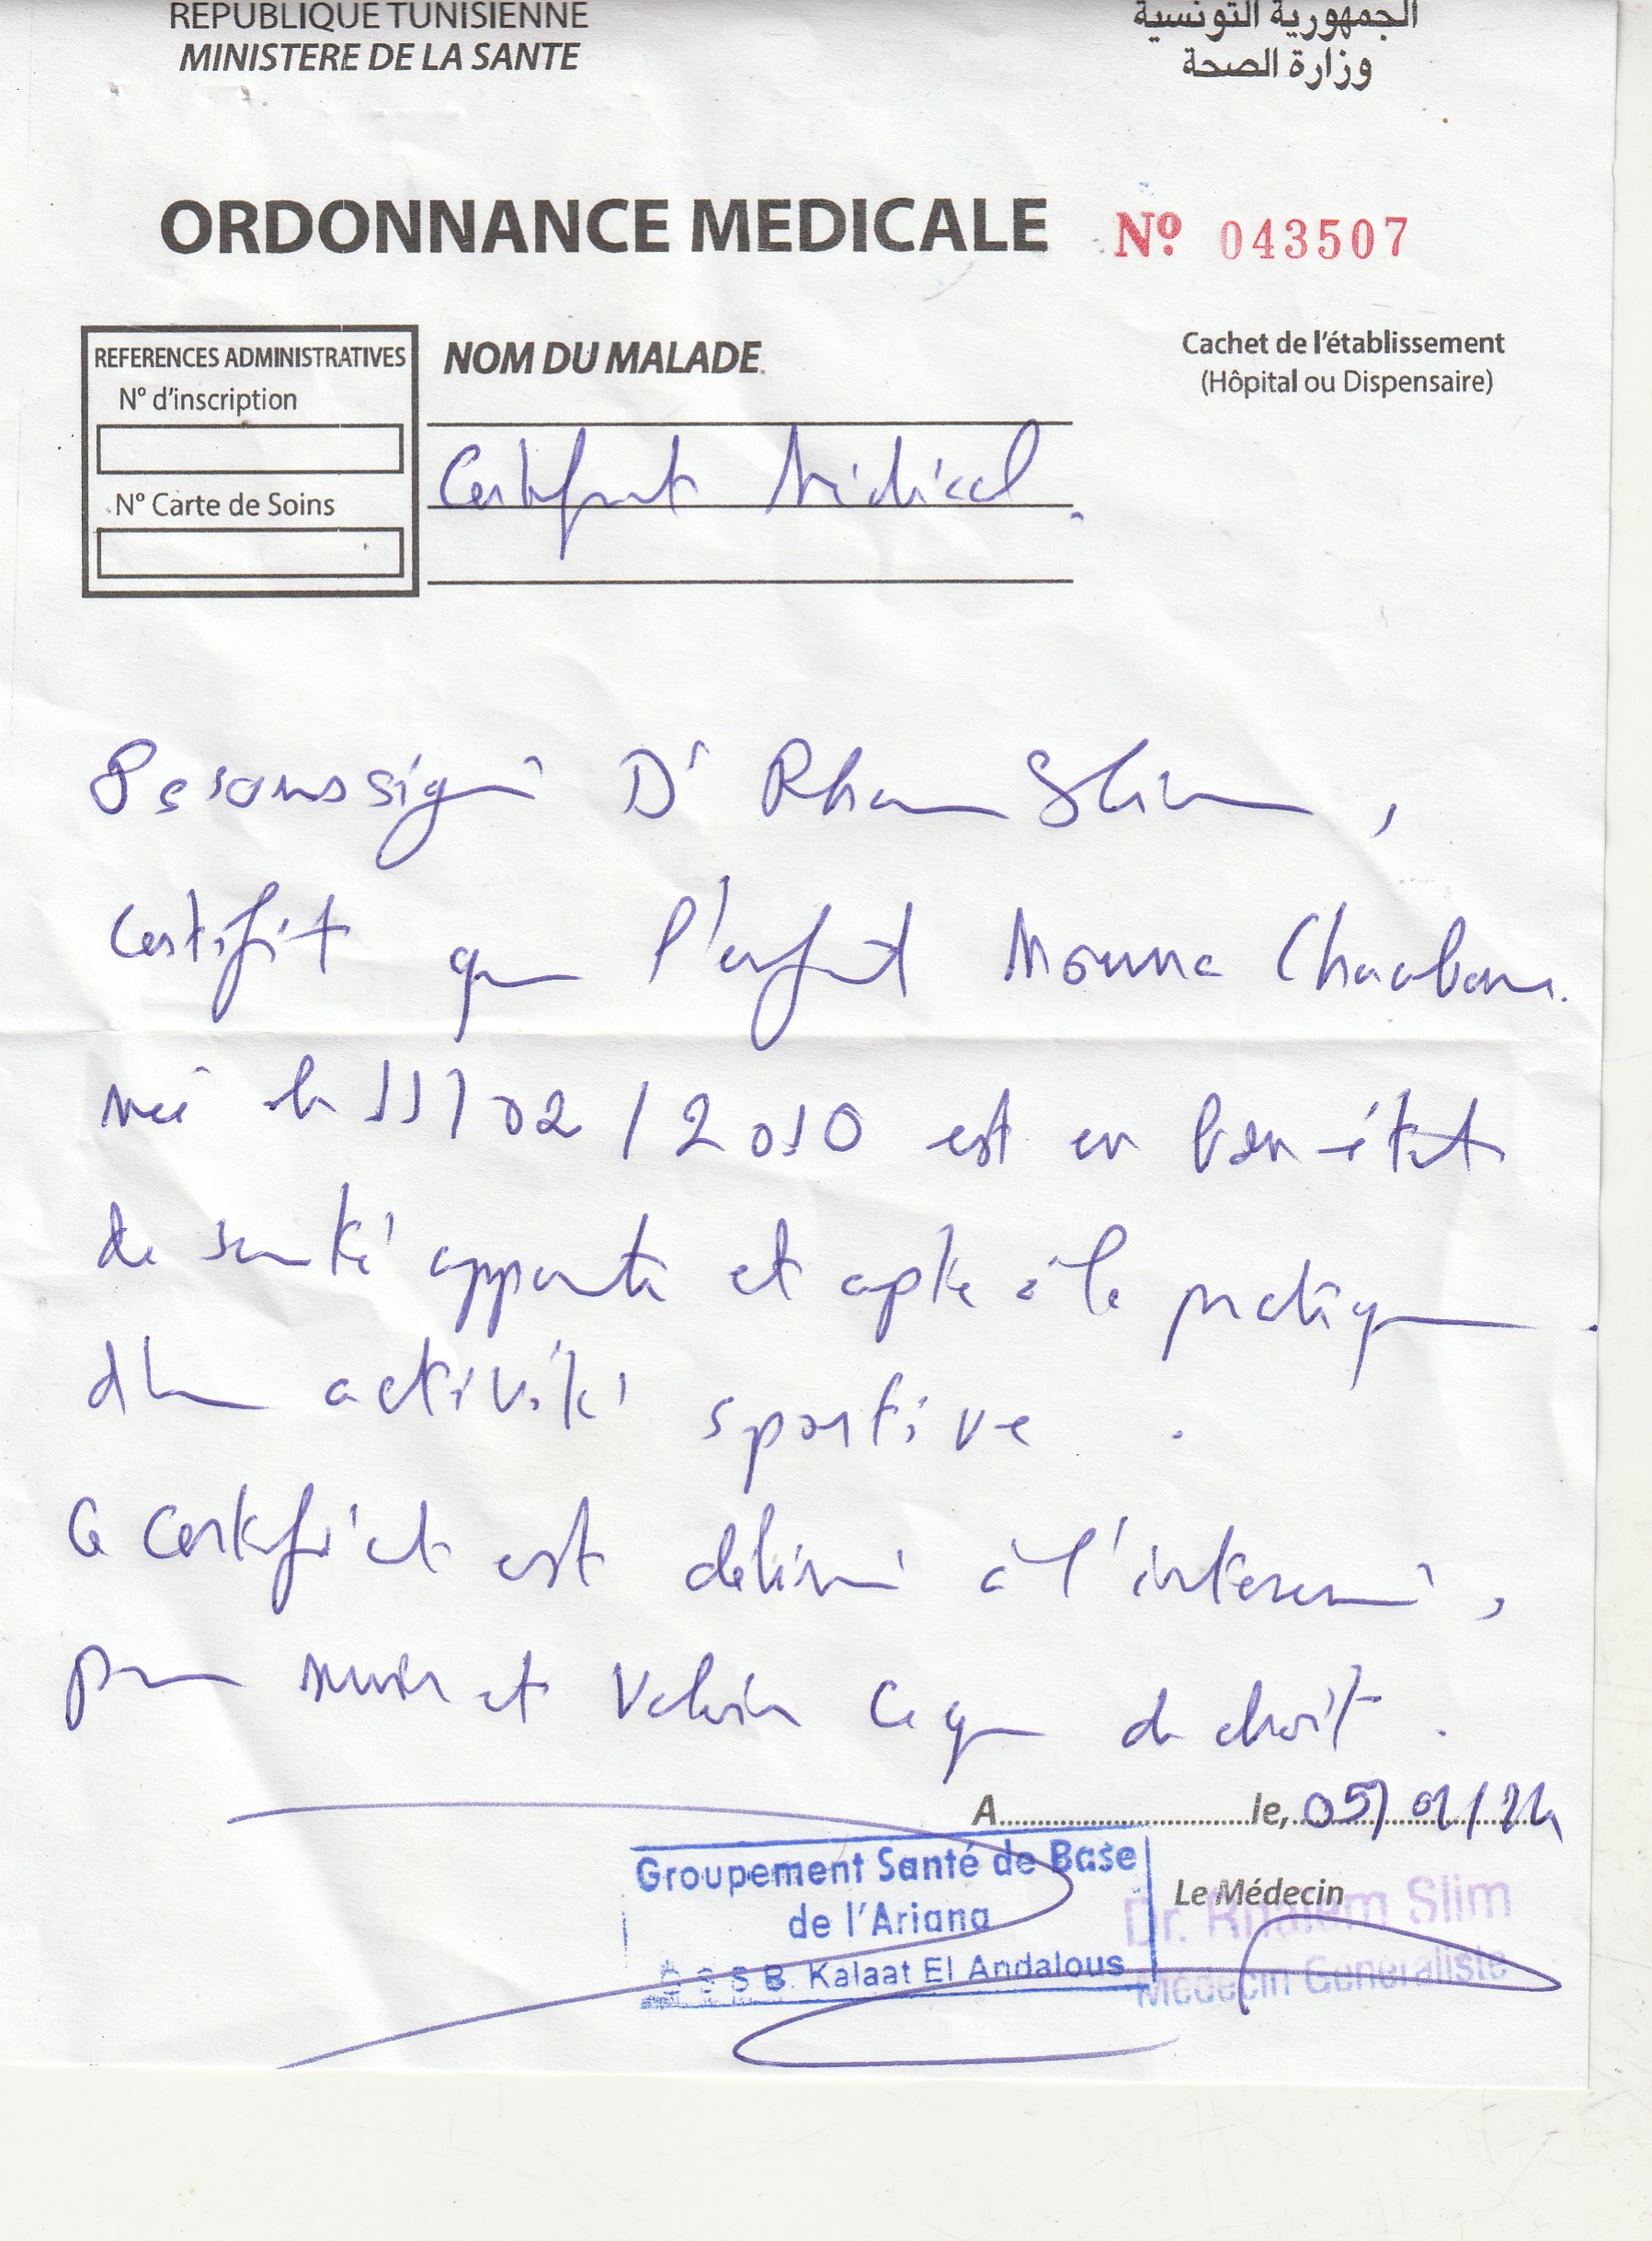 REPUBLIQUE TUNISIENNE
MINISTERE DE LA SANTE
الجمهورية التونسية
وزارة الصحة
ORDONNANCE MEDICALE Nº 043507
REFERENCES ADMINISTRATIVES
N° d'inscription
N° Carte de Soins
NOM DU MALADE
Cachet de l'établissement
(Hôpital ou Dispensaire)
Certificat Médical.
soussigné Dr Slim,
Certifit que l'enfant Mouna Chaabane
née le 11/02/2010 est en bon état
de santé apparente et apte à la pratique
d'une activité sportive.
Ce Certificat est délivré à l'intéressé,
pour servir et valoir ce que de droit.
A..............................le, 05/01/24
Groupement Santé de Base
de l'Ariana
S B. Kalaat El Andalous
Le Médecin
Dr. Slim
Médecin Généraliste